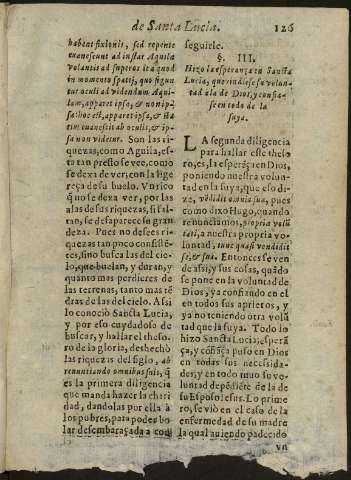 de Santa Lucia. 126
habent fixionis, sed repente
euanescunt ad instar Aquila
volantis ad superos ita quod
in momento spatij, quo figun
tur oculi ad videndum Aqui-
lam, apparet ipsa, & non ip-
sa: hoc est, apparet ipsa, & sta
tim euanescit ab oculis, & ip-
sa non videtur. Son las ri-
quezas, como Aguila, es-
ta tan presto se vee, como
se dexa de ver, con la lige
reça de su buelo. Vn rico
q̃ no se dexa ver, por las
alas de sus riquezas, si fal-
tan, se desaparece su gran
deza. Pues no desees ri-
quezas tan poco consistē-
tes, sino busca las del cie-
lo, que buelan, y duran, y
quanto mas perdieres de
las terrenas, tanto mas tē
dras de las del cielo. Assi
lo conociò Sancta Lucia,
y por eso cuydadosa de
buscar, y hallar el theso-
ro de la gloria, deshechò
las riquezas del siglo, ab
renuntiando omnibus suis, q̃
es la primera diligencia
que manda hazer la chari
dad, dandolas por ella à
los pobres, para poder bo
lar desembaraçada a con
seguirle.
§. III.
Hizo la esperanza en Sancta
Lucia, que rindiese su volun
tad à la de Dios, y confia-
se en todo de la
suya.
LA segunda diligencia
para hallar este theso-
ro, es, la esperāça en Dios,
poniendo nuestra volun-
tad en la suya, que eso di-
ze, vēdidit omnia sua, pues
como dixo Hugo, quando
renunciamos, propria volū
tati, a nuestra propria vo-
luntad, tunc quasi vendidit
se, & sua. Entonces se ven
de assi, y sus cosas, quādo
se pone en la voluntad de
Dios, ya confiando en el
en todos sus aprietos, y
ya no teniendo otra volū
tad que la suya. Todo lo
hizo Sancta Lucia; esperā
ça, y confiāça puso en Dios
en todas sus necessida-
des, y en todo tuuo su vo-
luntad depēdiēte de la de
su Esposo Iesus. Lo prime
ro, se viò en el caso de la
enfermedad de su madre
la qual auiendo padecido
vn